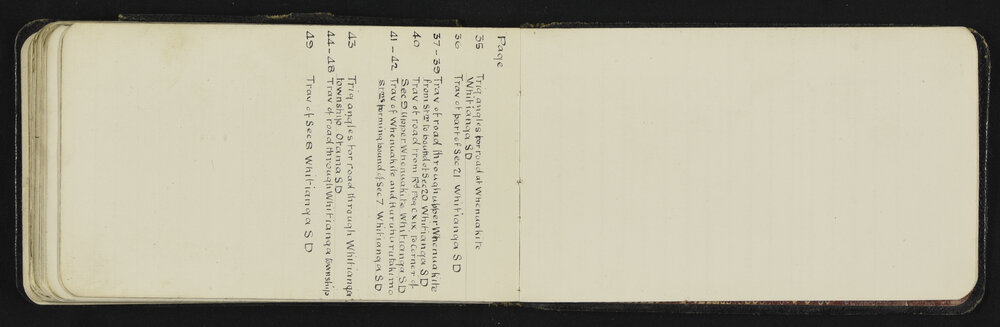 Page
35 Trig angles for road at Whenuakite
Whitianga SD
36 Trav of part of Sec 21 Whitianga SD
37-39 Trav of road through upper Whenuakite
from Stm to bound of Sec 20 Whitianga SD
40 Trav of road from Rd Peg CXIX to corner of
Sec 9 Upper Whenuakite Whitianga SD
41-42 Trav of Whenuakite and
Strms forming bound of Sec 7 Whitianga SD
43 Trig angles for road through Whitianga
township Otama SD
44-48 Trav of road through Whitianga township
49 Trav of Sec 8 Whitianga SD